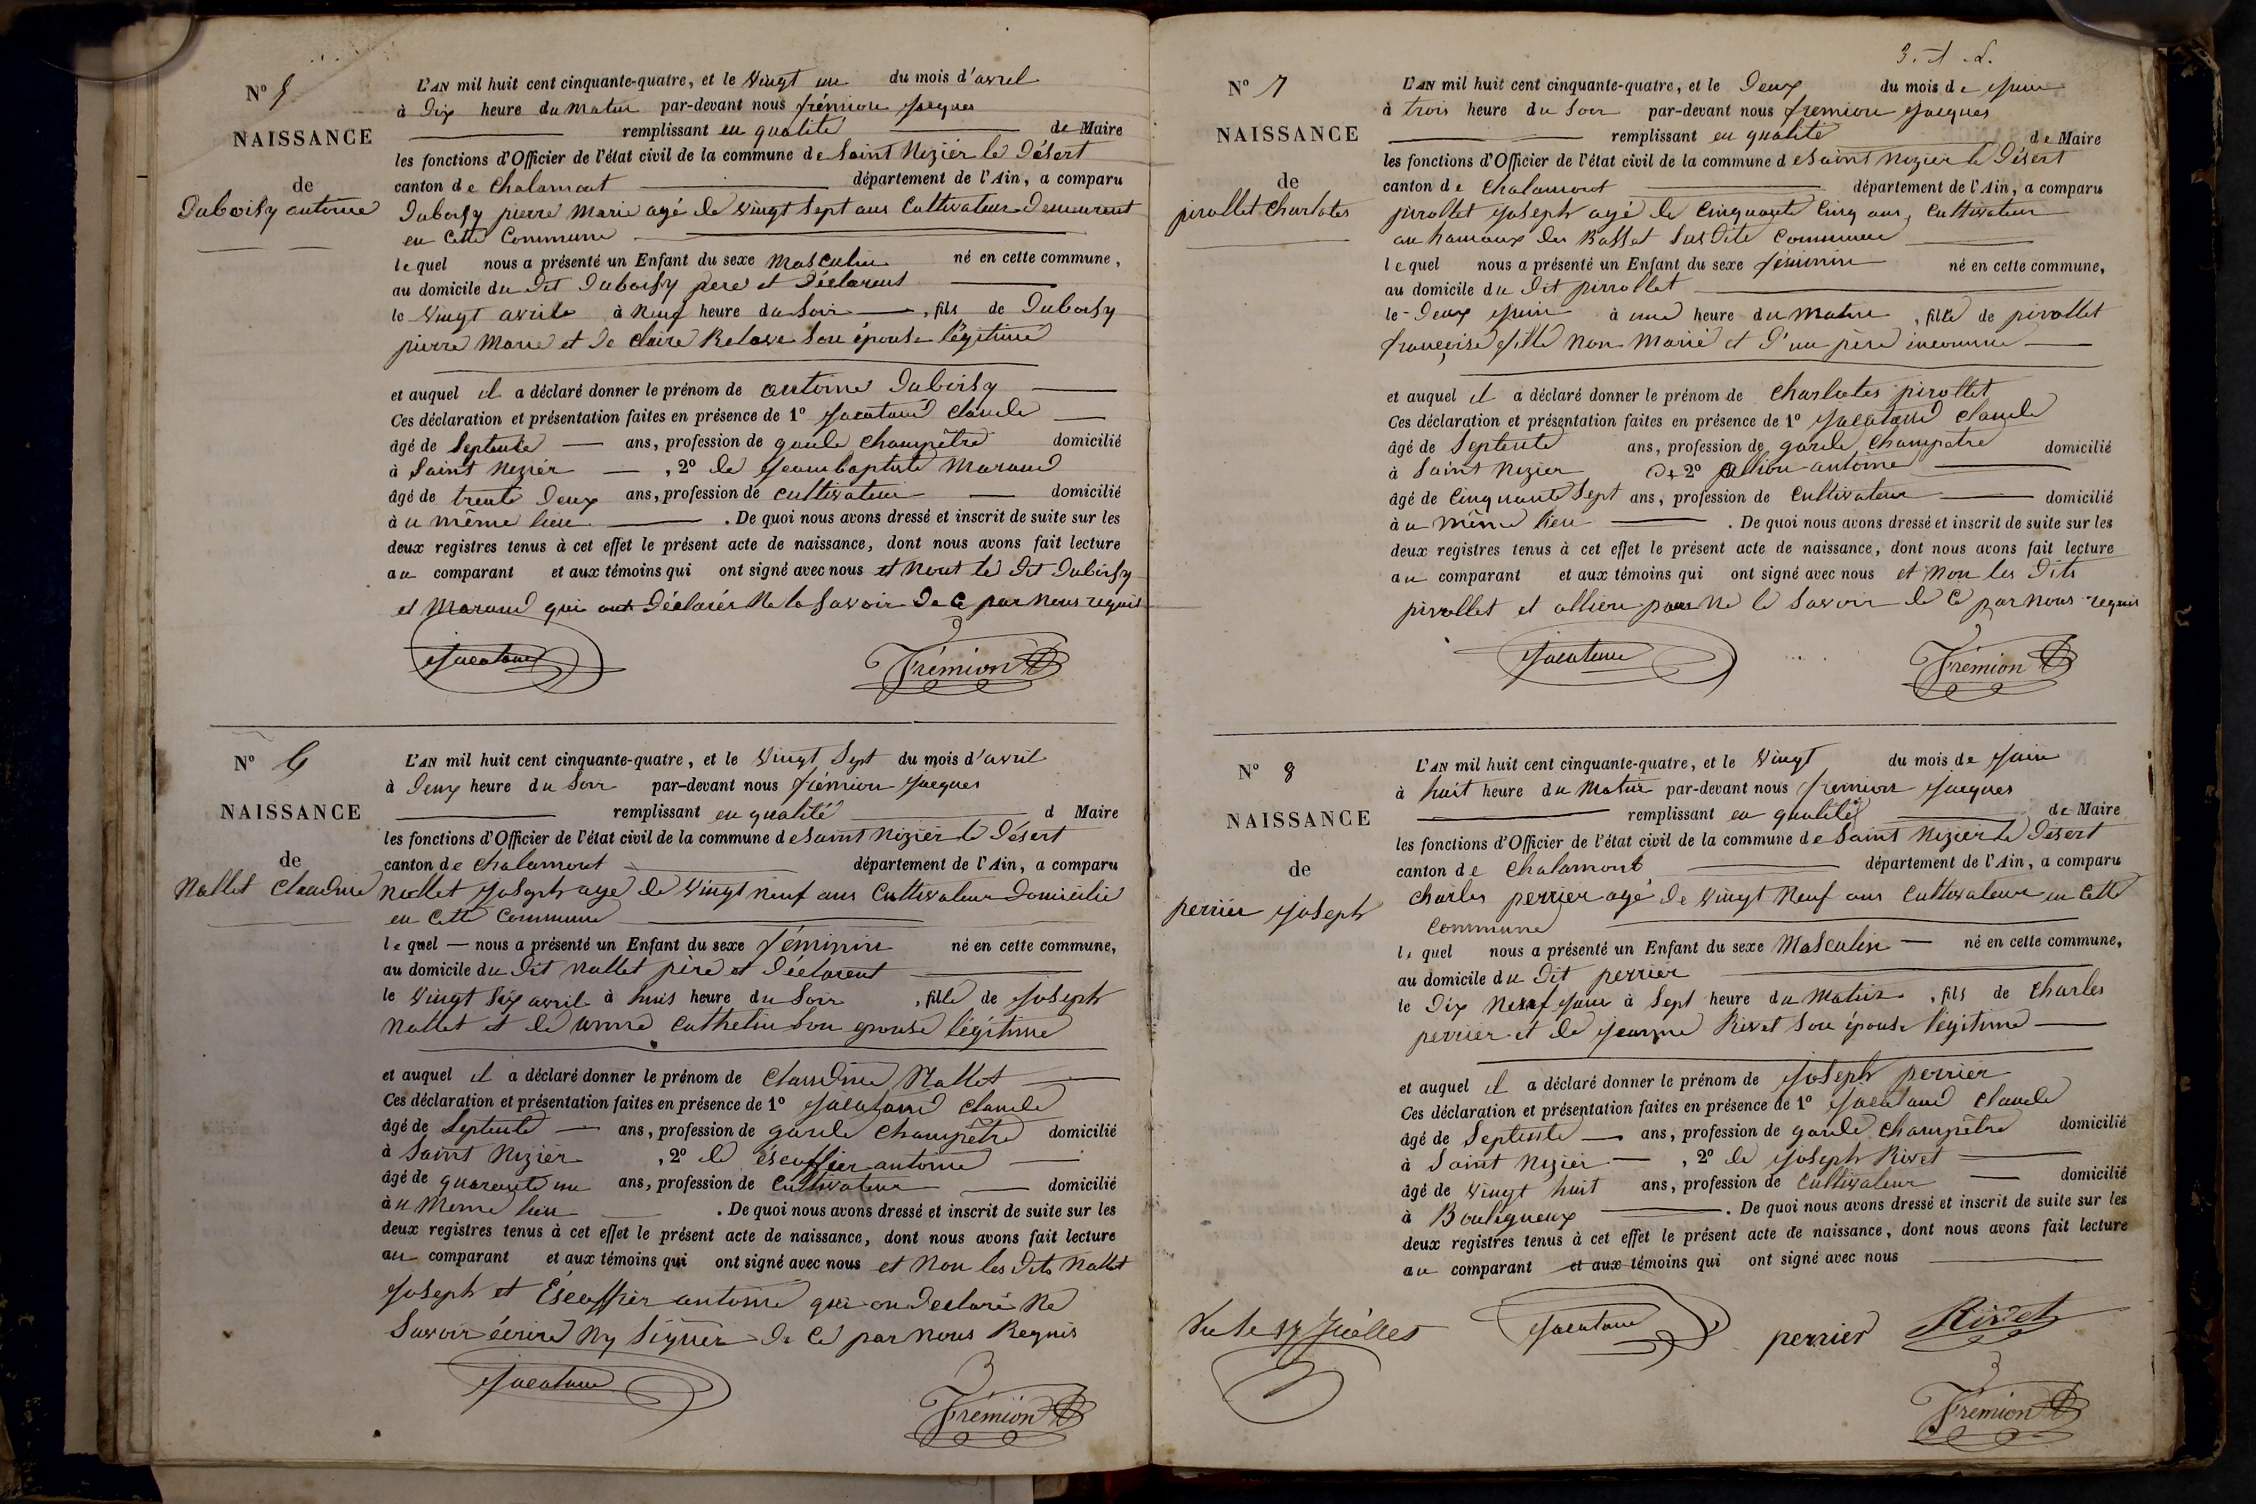 N° 5
NAISSANCE
de
Duboisy antoine
L'AN mil huit cent cinquante-quatre, et le Vingt un du mois d'avril
à Dix heure du Matin par-devant nous frémion Jacques
remplissant en qualité de Maire
les fonctions d'Officier de l'état civil de la commune de Saint Nizier le Désert
canton de Chalamont département de l'Ain, a comparu
Duboisy pierre Marie agé de Vingt Sept ans Cultivateur Demeurent
en Cette Commune
lequel nous a présenté un Enfant du sexe Masculin né en cette commune,
au domicile du Dit Duboisy père et Déclarent
le Vingt avrile à Neuf heure du Soir, fils de Duboisy
pierre Marie et de Claire Son épouse légitime
et auquel il a déclaré donner le prénom de antoine Duboisy
Ces déclaration et présentation faites en présence de 1° Claude
âgé de Septente ans, profession de garde Champêtre domicilié
à Saint Nizier, 2° de Jean baptiste Maraud
âgé de trente Deux ans, profession de Cultivateur domicilié
au même lieu. De quoi nous avons dressé et inscrit de suite sur les
deux registres tenus à cet effet le présent acte de naissance, dont nous avons fait lecture
au comparant et aux témoins qui ont signé avec nous et Nont le Dit Duboisy
et Maraud qui ont Déclarés Ne la Savoir De Ce par Nous requis
Frémion
N° 6
NAISSANCE
de
Nallet Claudine
L'AN mil huit cent cinquante-quatre, et le Vingt Sept du mois d'avril
à Deux heure du Soir par-devant nous frémion Jacques
remplissant en qualité d Maire
les fonctions d'Officier de l'état civil de la commune de Saint Nizier le Désert
canton de Chalamont département de l'Ain, a comparu
Nallet Joseph age de Vingt neuf ans Cultivateur Domicilié
en Cette Commune
lequel nous a présenté un Enfant du sexe féminin né en cette commune,
au domicile du Dit Nallet père et Déclarent
le Vingt Six avril à huis heure du Soir, fille de Joseph
Nallet et de anne Cathelin Son epouse légitime
et auquel il a déclaré donner le prénom de Claudine Nallet
Ces déclaration et présentation faites en présence de 1° Claude
âgé de Septente ans, profession de garde Champêtre domicilié
à Saint Nizier, 2° de éscoffier antoine
âgé de quarente un ans, profession de Cultivateur domicilié
au Meme lieu. De quoi nous avons dressé et inscrit de suite sur les
deux registres tenus à cet effet le présent acte de naissance, dont nous avons fait lecture
au comparant et aux témoins qui ont signé avec nous et Non les Dits Nallet
Joseph et Éscoffier antoine qui on Declaré Ne
Savoir écrire Ny Signer De Ce par Nous Requis
Frémion
3. .
N° 7
NAISSANCE
de
pirollet Charlotes
L'AN mil huit cent cinquante-quatre, et le Deux du mois de Juin
à trois heure du Soir par-devant nous fremion Jacques
remplissant en qualité de Maire
les fonctions d'Officier de l'état civil de la commune de Saint Nizier le Désert
canton de Chalamont département de l'Ain, a comparu
pirollet Joseph agé de Cinquante Cinq ans, Cultivateur
au hamaux des Bassat Sus Dite Commune
lequel nous a présenté un Enfant du sexe féminin né en cette commune,
au domicile du Dit pirrollet
le Deux Juin à une heure du Matin, fille de pirollet
françoise fille Non Marié et D'un père inconnue
et auquel il a déclaré donner le prénom de Charlotes pirollet
Ces déclaration et présentation faites en présence de 1° Claude
âgé de Septente ans, profession de garde Champetre domicilié
à Saint Nizier 2° allion antoine
âgé de Cinquante Sept ans, profession de Cultivateur domicilié
au Même lieu. De quoi nous avons dressé et inscrit de suite sur les
deux registres tenus à cet effet le présent acte de naissance, dont nous avons fait lecture
au comparant et aux témoins qui ont signé avec nous et Non les Dits
pirollet et allion pour Ne le Savoir de Ce par Nous requis
Frémion
N° 8
NAISSANCE
de
perrier Joseph
L'AN mil huit cent cinquante-quatre, et le Vingt du mois de Juin
à huit heure du Matin par-devant nous fremion Jacques
remplissant en qualité de Maire
les fonctions d'Officier de l'état civil de la commune de Saint Nizier le Désert
canton de Chalamont département de l'Ain, a comparu
Charles perrier agé de Vingt Neuf ans Cultivateur en Cette
Commune
lequel nous a présenté un Enfant du sexe Masculin né en cette commune,
au domicile du Dit perrier
le Dix Neuf Juin à Sept heure du Matin, fils de Charles
perrier et de Jeanne Rivet Son épouse légitime
et auquel il a déclaré donner le prénom de Joseph perrier
Ces déclaration et présentation faites en présence de 1° Claude
âgé de Septente ans, profession de garde Champêtre domicilié
à Saint Nizier, 2° de Joseph Rivet
âgé de Vingt huit ans, profession de Cultivateur domicilié
à Bouligneux. De quoi nous avons dressé et inscrit de suite sur les
deux registres tenus à cet effet le présent acte de naissance, dont nous avons fait lecture
au comparant et aux témoins qui ont signé avec nous
perrier Rivet
Frémion